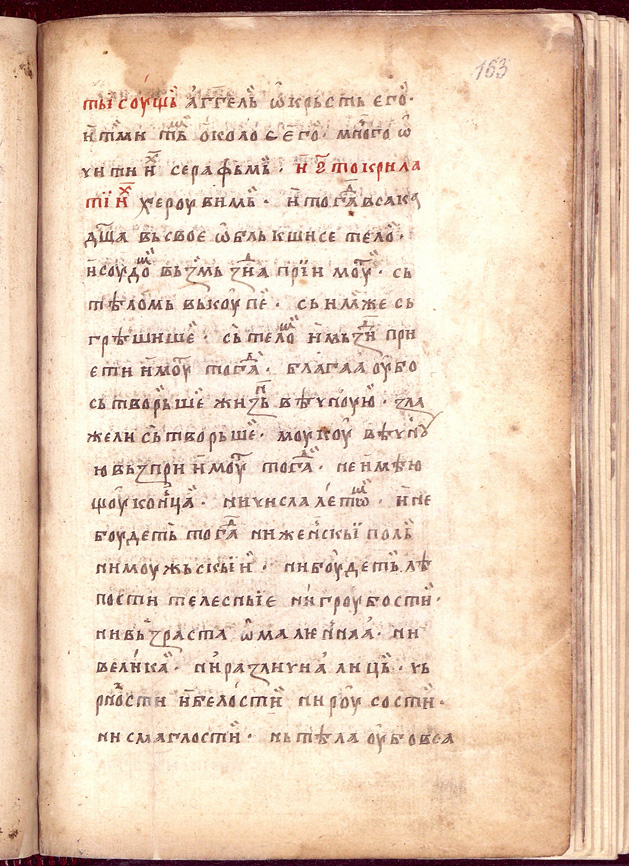 163
тысоущь агг҃ель ѡкрьсть его·
и тмⷨи тѣ около с его· много ѡ
чити иⷯ серафымь· и ѕ҃токрила
тїиⷯ хероувимь· и тогⷣа всака
дш҃а въ свое ѡбльк шисе тело·
и соудоⷨ възьмьзⷣна прїимоуⷮ· съ
тѣломь выкоупе· сь нимже сь
грѣшише· сь телоⷨ и мьзⷣи при
ети имоуⷮ тогⷣа· благаа оубо
сьтворьше жизⷩь вѣчноую· зла
жели сьтворьше· моукоу вѣчноу
ю вьзпри имоуⷮ тогⷣа· не имѣю
щоу конца· ни числа лѣтѡⷨ· и не
боудеть тогⷣа ни женскїи поль
ни моужьскїи· ни боудеть лѣ
пости телесныїе ни гроубости·
ни вьзраста ѡмаленнаа· ни
велика· ни различна лиць· чь
рности и белости ни роусости·
ни смаглости· нь тѣла оубо вса